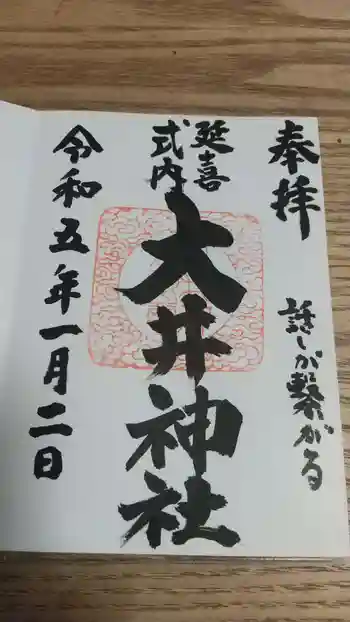 奉拝
話しが繋がる
延喜
式内
大井神社
令和五年一月二日